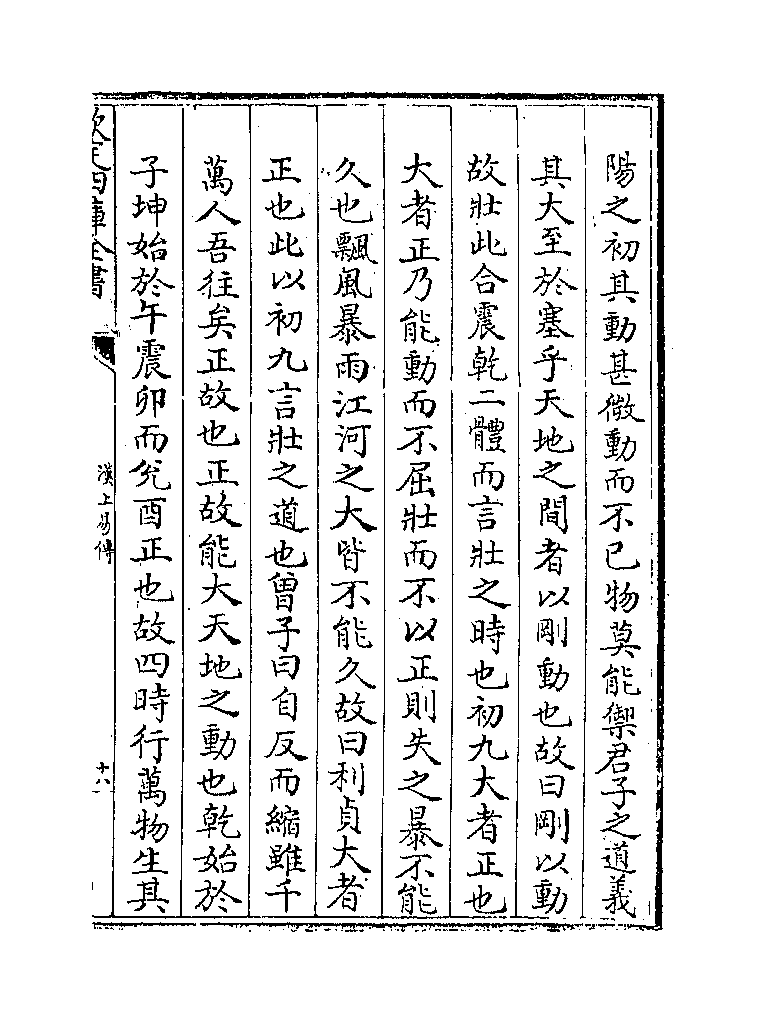 陽之初其動甚微動而不已物莫能禦君子之道義
其大至於塞乎天地之間者以剛動也故曰剛以動
故壯此合震乾二體而言壯之時也初九大者正也
大者正乃能動而不屈壯而不以正則失之暴不能
久也飄風暴雨江河之大皆不能久故曰利貞大者
正也此以初九言壯之道也曾子曰自反而縮雖千
萬人吾往矣正故也正故能大天地之動也乾始於
子坤始於午震卯而兊酉正也故四時行萬物生其
欽定四庫全書
漢上易傳
十八